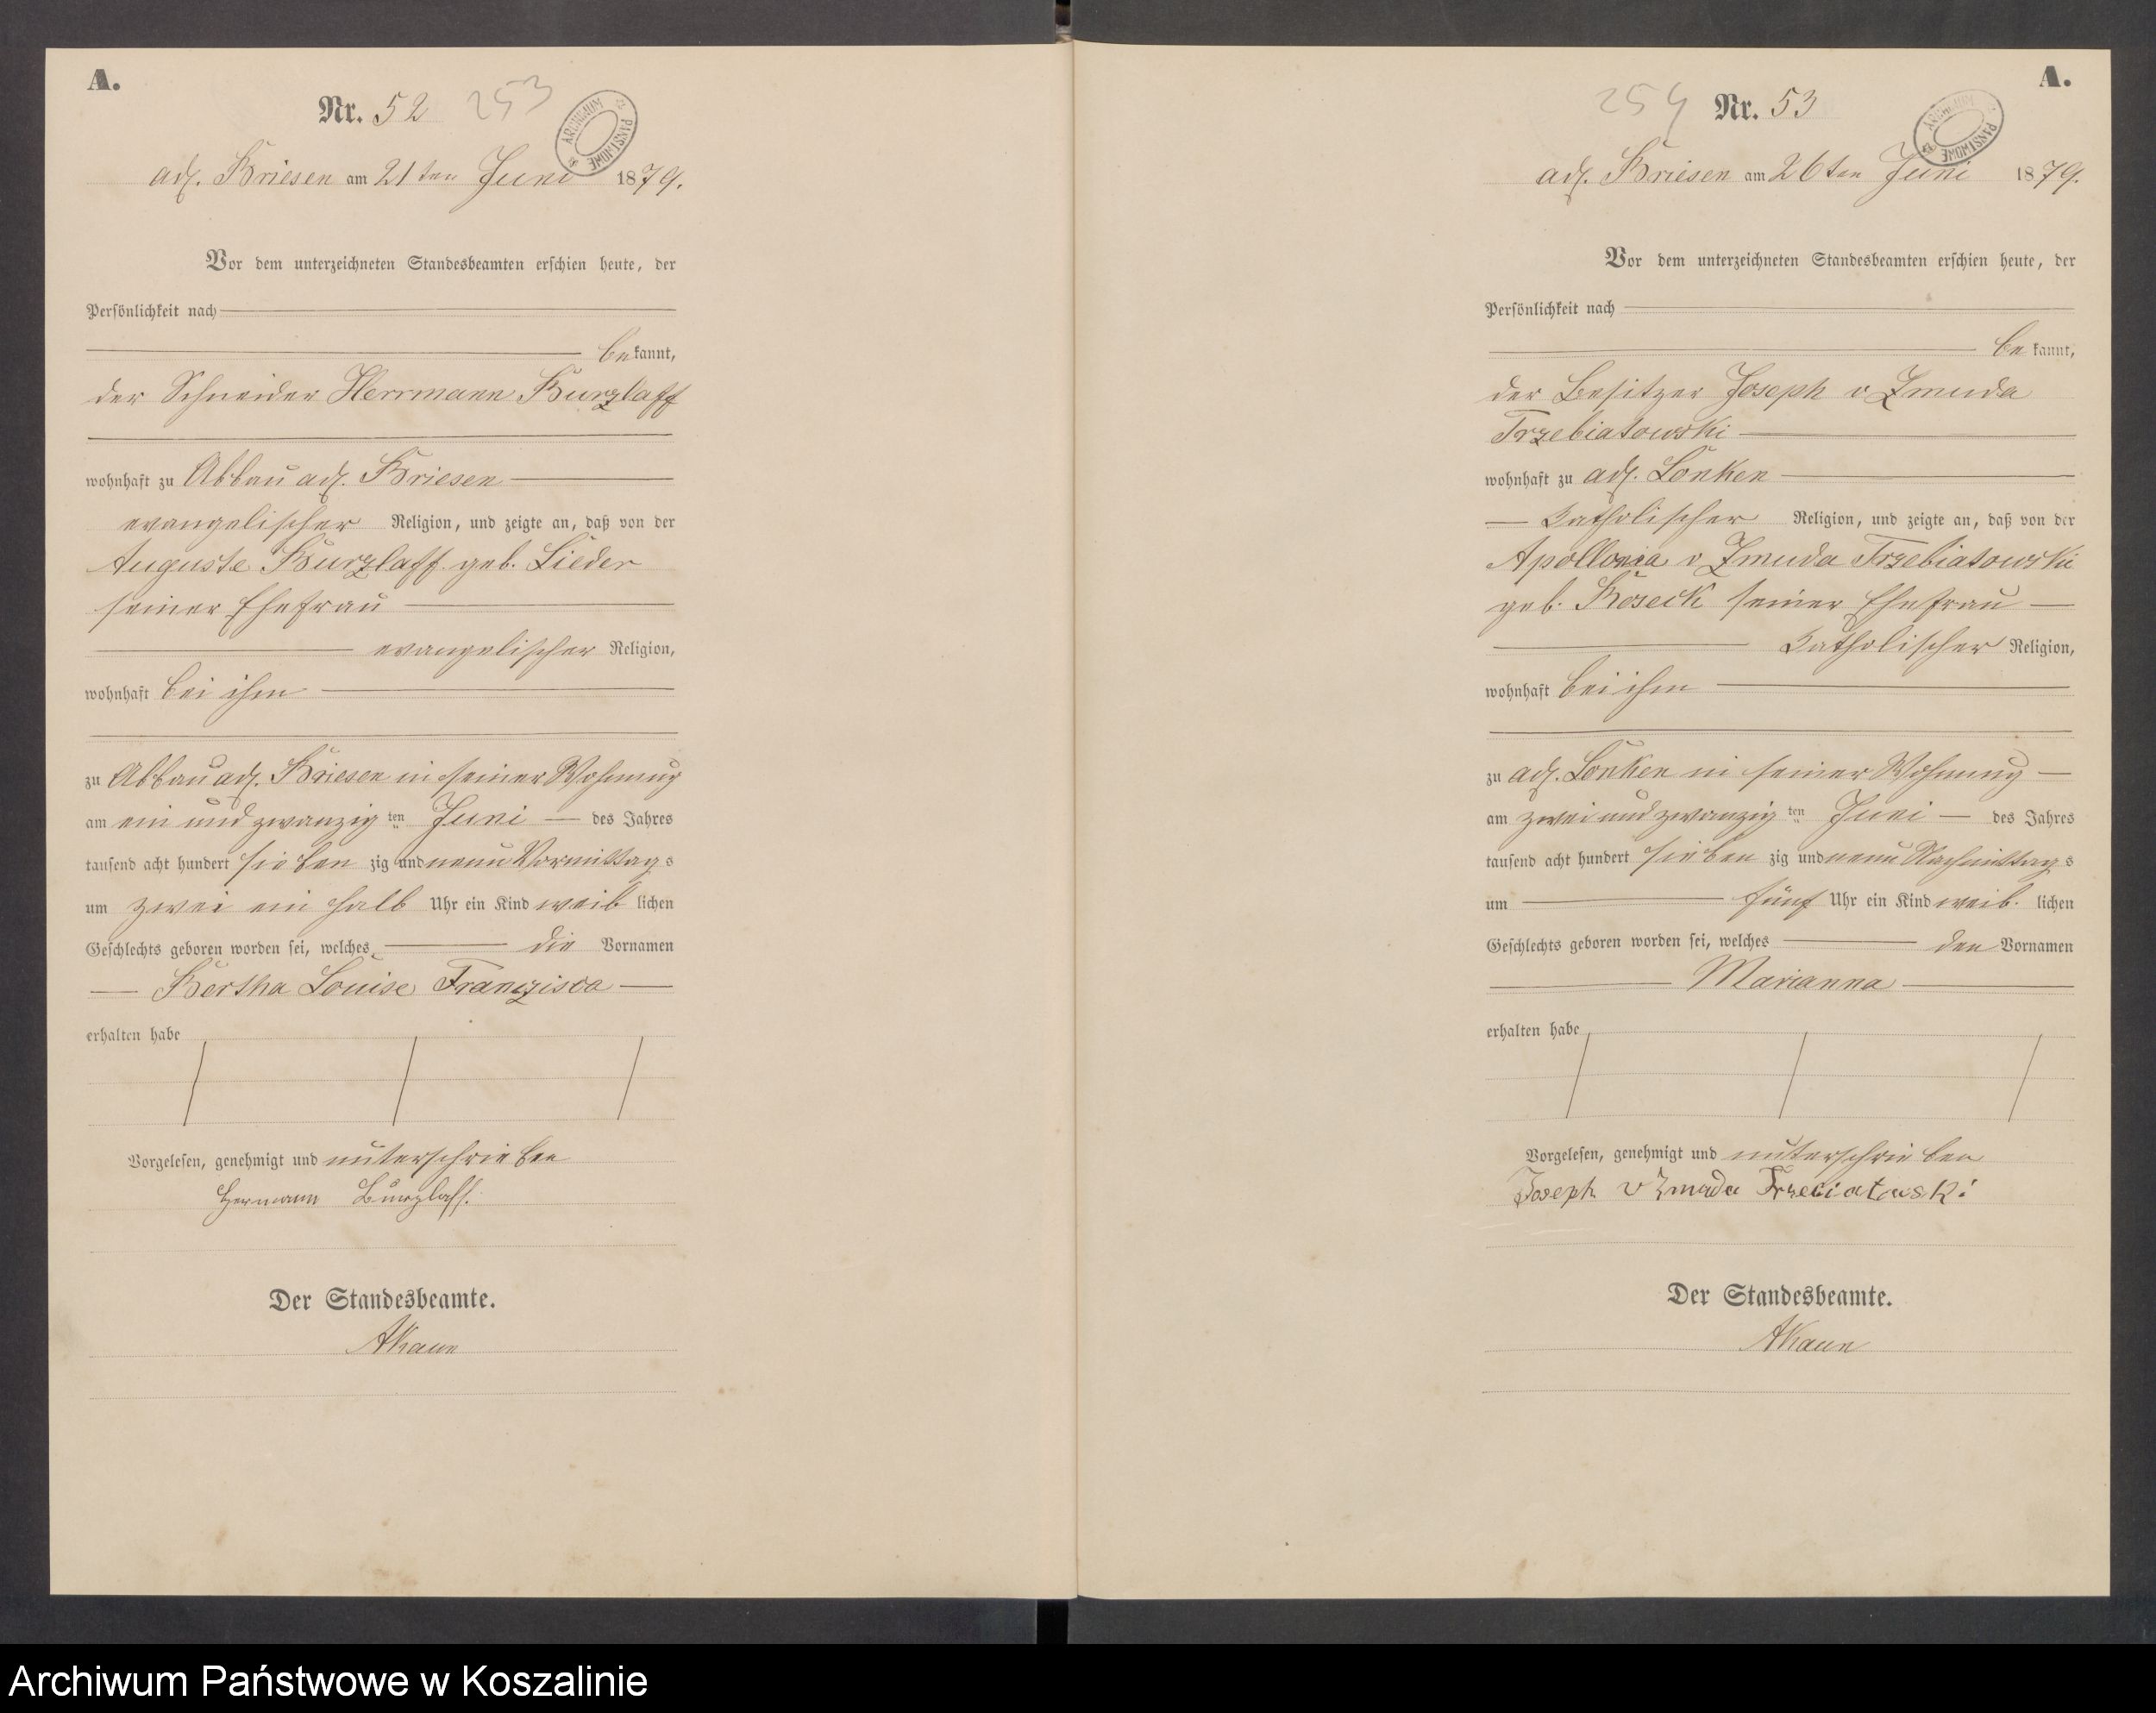 A.
Nr. 52 253
ARCHIWUM PAŃSTWOWE
adl. Briesen am 21ten Juni 1879.
Vor dem unterzeichneten Standesbeamten erschien heute, der
Persönlichkeit nach
bekannt,
der Schneider Herrmann Burzlaff
wohnhaft zu Abbau adl. Briesen
evangelischer Religion, und zeigte an, daß von der
Auguste Burzlaff geb. Lieder
seiner Ehefrau
evangelischer Religion,
wohnhaft bei ihm
zu Abbau adl. Briesen in seiner Wohnung
am ein und zwanzig ten Juni des Jahres
tausend acht hundert sieben zig und neun Vormittags
um zwei ein halb Uhr ein Kind weib lichen
Geschlechts geboren worden sei, welches die Vornamen
Bertha Louise Franzisca
erhalten habe
Vorgelesen, genehmigt und unterschrieben
Hermann Burzlaff.
Der Standesbeamte.
AKaun
A.
254 Nr. 53
ARCHIWUM PAŃSTWOWE
adl. Briesen am 26ten Juni 1879.
Vor dem unterzeichneten Standesbeamten erschien heute, der
Persönlichkeit nach
be kannt,
der Besitzer Joseph v Zmuda
Trzebiatowski
wohnhaft zu adl. Lonken
Katholischer Religion, und zeigte an, daß von der
Apollonia v Zmuda Trzebiatowski
geb. Koseck seiner Ehefrau
Katholischer Religion,
wohnhaft bei ihm
zu adl. Lonken in seiner Wohnung
am zwei und zwanzig ten Juni des Jahres
tausend acht hundert sieben zig und neun Nachmittags
um fünf Uhr ein Kind weib. lichen
Geschlechts geboren worden sei, welches den Vornamen
Marianna
erhalten habe
Vorgelesen, genehmigt und unterschrieben
Joseph v Zmuda Trzebiatowski
Der Standesbeamte.
AKaun
Archiwum Państwowe w Koszalinie